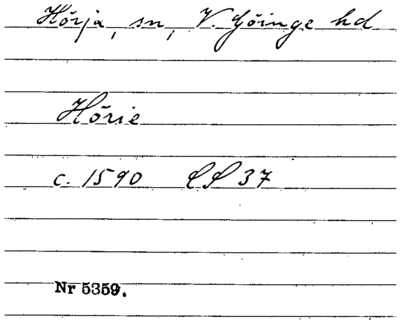 Hörja, sn, V. Göinge hd
Hörie
c. 1590 LP 37
Nr 5359.